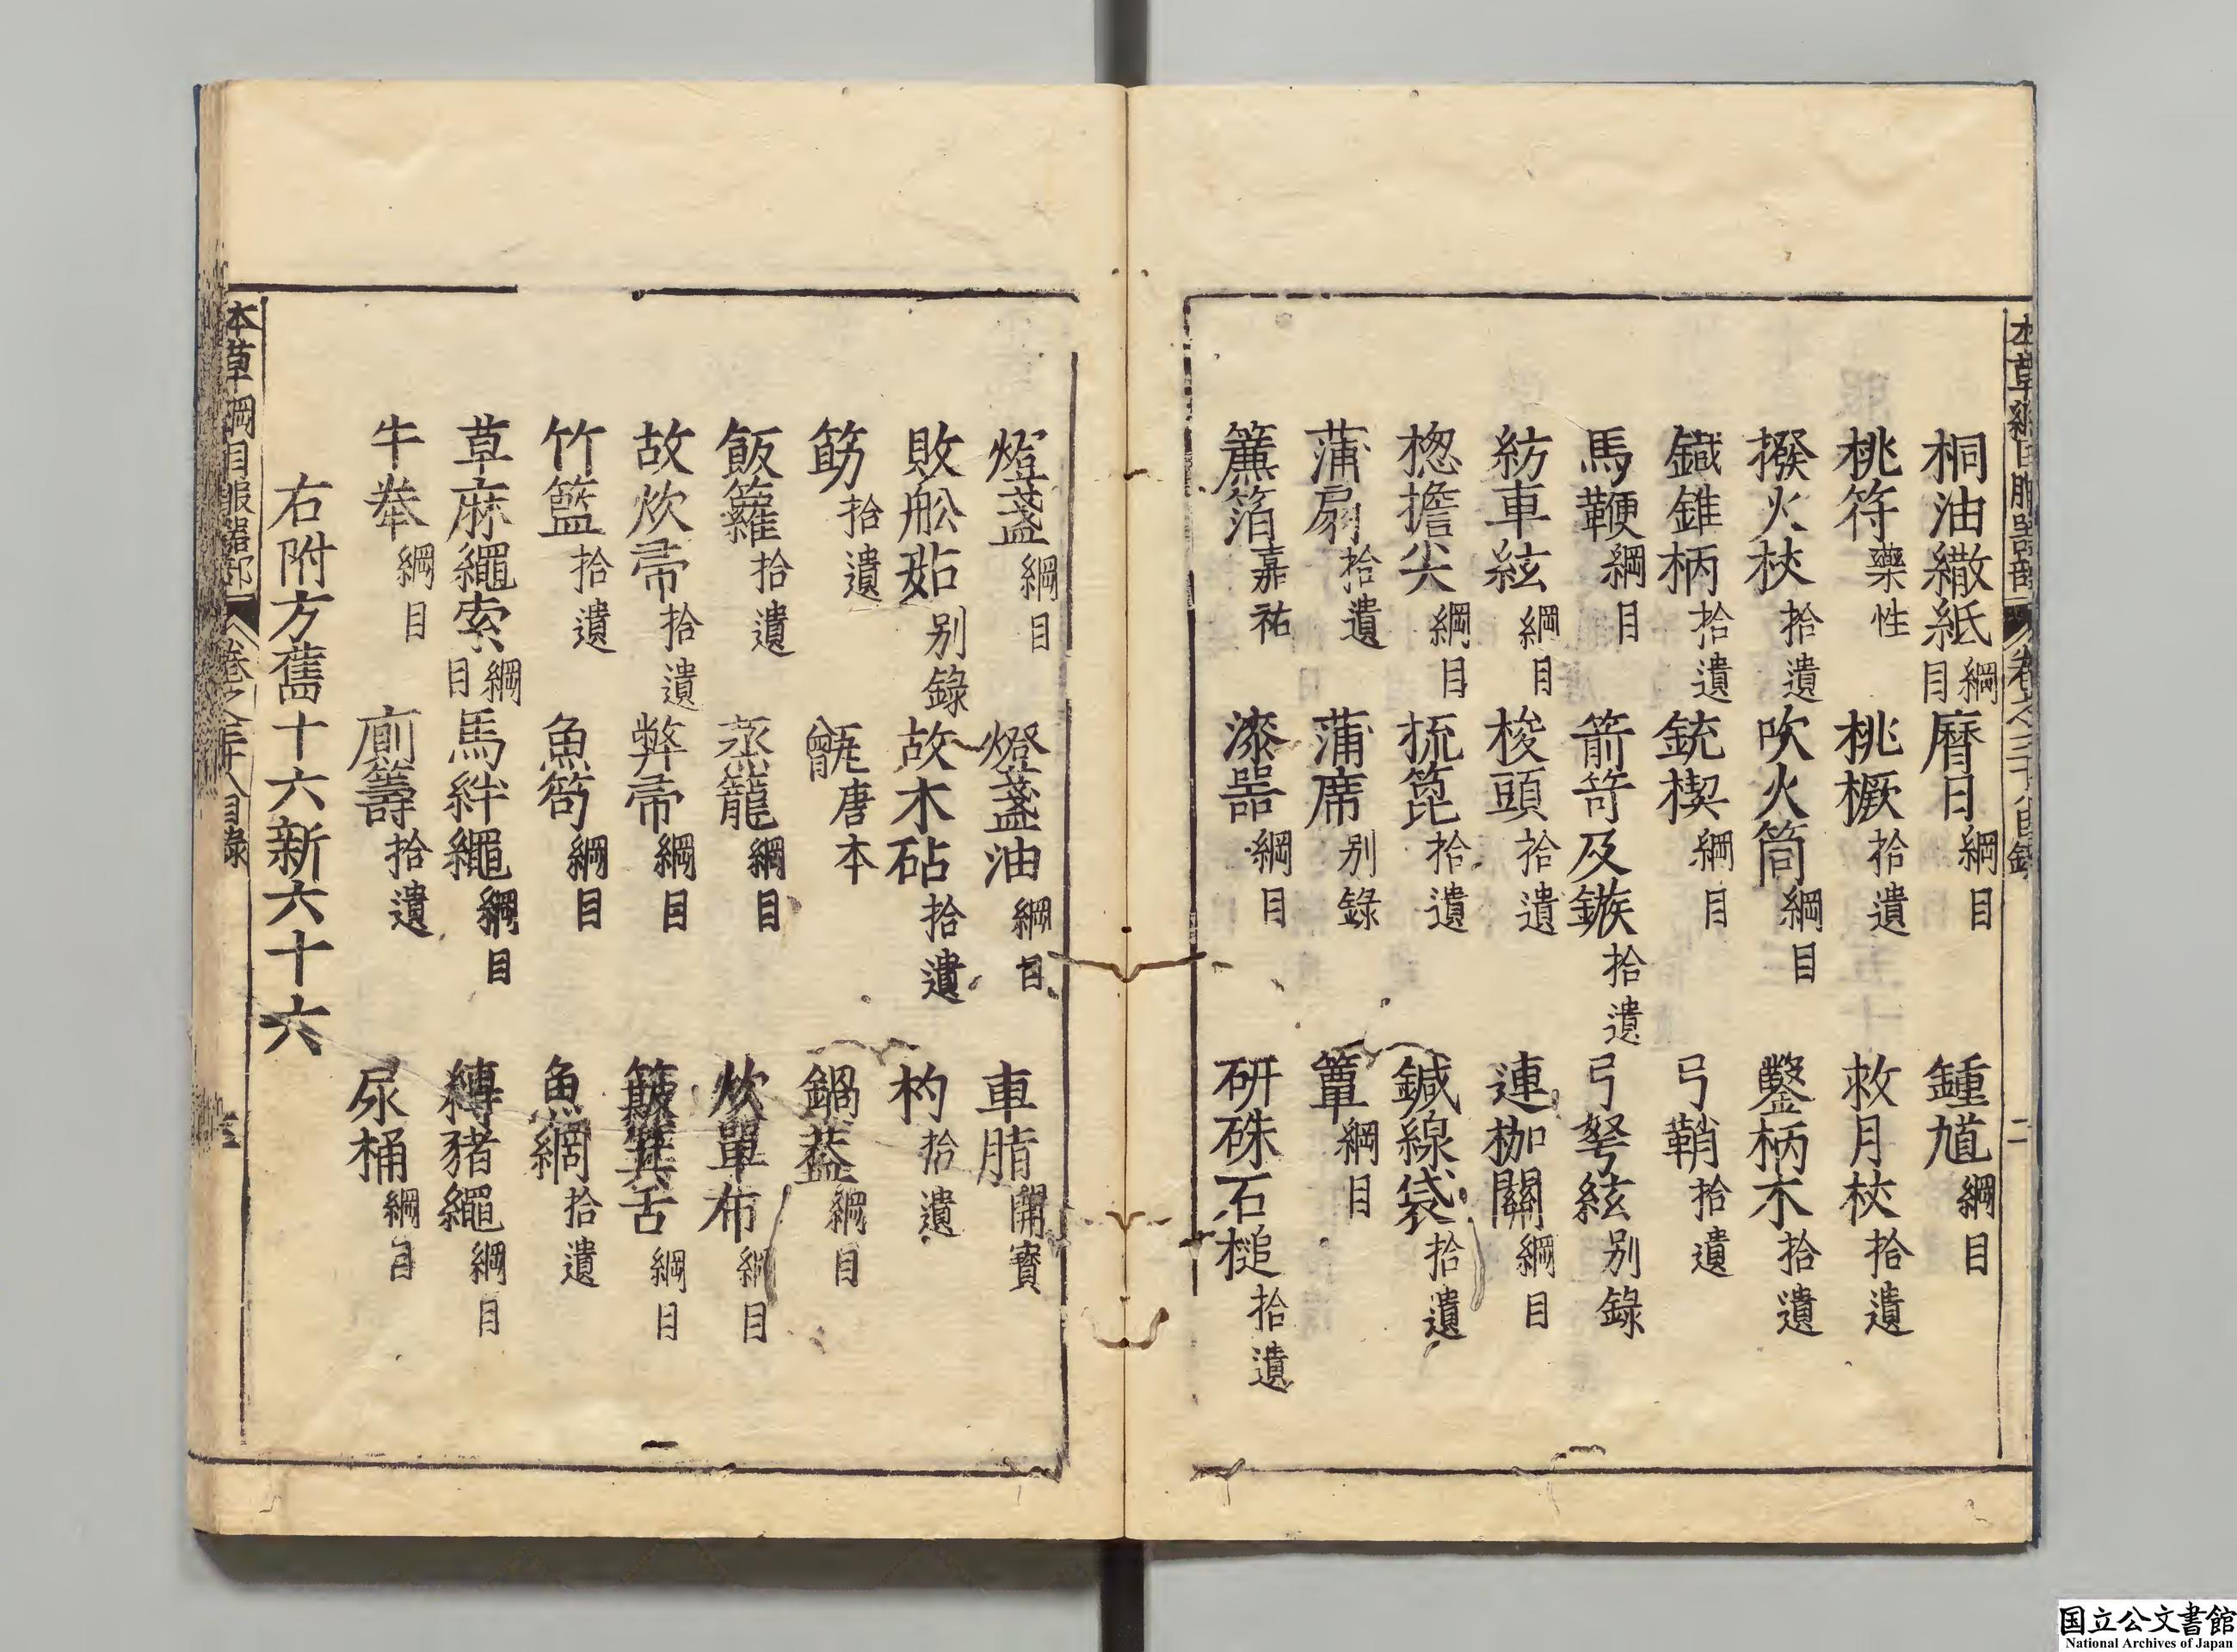 本草綱目服器部 卷之三十八目錄 二
桐油繖紙綱目 曆日綱目 鍾馗綱目
桃符藥性 桃橛拾遺 救月杖拾遺
撥火杖拾遺 吹火筒綱目 鑿柄木拾遺
鐵錐柄拾遺 銃楔綱目 弓鞘拾遺
馬鞭綱目 箭笴及鏃拾遺 弓弩絃別錄
紡車絃綱目 梭頭拾遺 連枷關綱目
楤擔尖綱目 梳篦拾遺 鍼線袋拾遺
蒲扇拾遺 蒲席別錄 簟綱目
簾箔嘉祐 漆器綱目 研硃石槌拾遺
燈盞綱目 燈盞油綱目 車脂開寳
敗舩茹別錄 故木砧拾遺 杓拾遺
筯拾遺 甑唐本 鍋葢綱目
飯籮拾遺 蒸籠綱目 炊單布綱目
故炊帚拾遺 弊帚綱目 簸箕舌綱目
竹籃拾遺 魚笱綱目 魚網拾遺
草麻繩索綱目 馬絆繩綱目 縛豬繩綱目
牛桊綱目 廁籌拾遺 尿桶綱目
右附方舊十六新六十六
本草綱目服器部 卷之三十八目錄
国立公文書館
National Archives of Japan